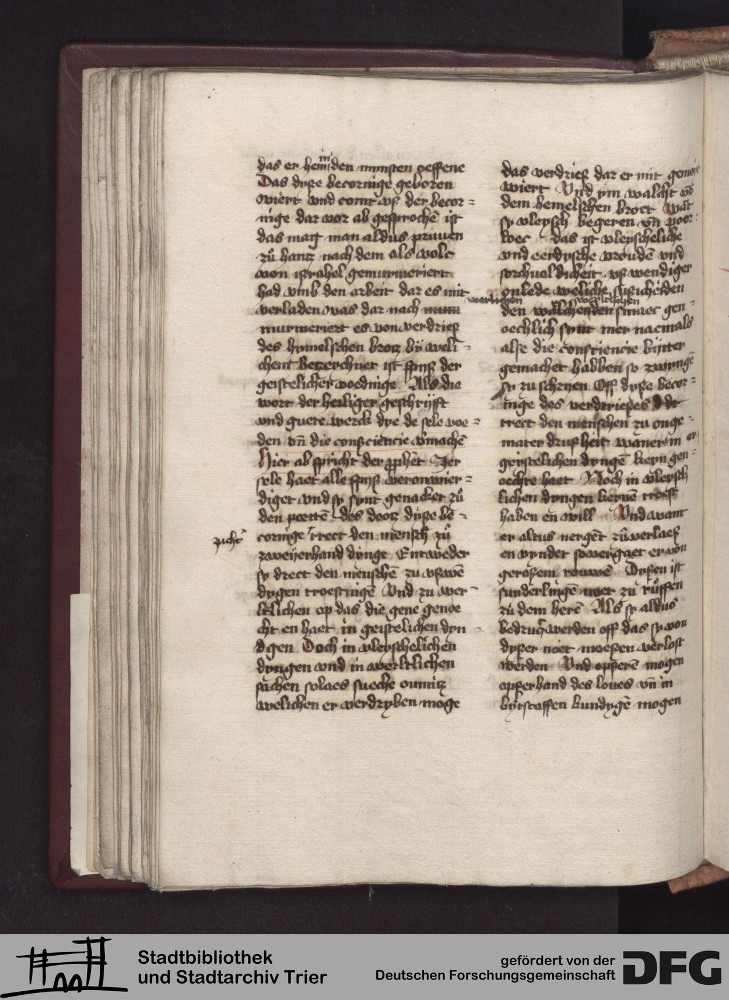 das er hem den mynsten oeffene
Das dysse becornige geboren
wiert vnd comt vß der becor=
nige dar vor ab gesprochē ist
das mag man aldus pruuen
zů hantz nach dem als volc
von israhel gemurmeriert
had vmb den arbeit dar es mit
verladen was dar nach
murmeriert es von verdrieß
des hymelschen brotz by weli=
chem betzeichnet ist spyß der
geistelicher woedinge Als die
wort der heiliger geschryft
vnd guete werck dye de sele voe=
den vn̄ die consciēncie vmachē
Hier ab spricht der ꝓphet Jer
sele haet alle spyß veronwer=
diget vnd sy synt genacket zů
den poerten des dootz dysse be=
cornige trect den mensch zů
zweyerhand dynge Entweder
sy drect den menschē zu vßwē
dygen troestingē Vnd zu wer=
ltlichen op das die gene genoe
cht en haet in geistelichen dyn=
dgen Doch in vleyschelichen
dyngen vnd in werltlichen
suchen solaes sueche
welichen er verdryben moge
das verdrieß dar er mit
wiert Vnd ym walcht vō
dem hemelschen broet Wāt
sy vleysch begeren vn̄ poor=
loec das ist vleyscheliche
vnd eerdysche vrouden vnd
sorchualdicheit vß wendiger
den smaec gen=
oechlich synt mer nacmals
alse die consciencie bynter
gemachet habben so zwynge
sy zu schryen Off dysse becor=
inge des verdrießes
trect den menschen zu onge=
mater drusheit waner in er
geystelichen dyngē keyn gen=
oechte haet Noch in vleysch
lichen dyngen kernē troest
haben en will Vnd want
er altus nerget zůverlaeß
en vynder so vergaet er von
geroßem rouwē Dyssen ist
sunderlinge noet zu růffen
zů dem herē Als sy aldus
bedrugt werden off das sy von
dysser noet moeßen verlost
werden Vnd opferē mogen
opferhand des loues vn̄ in
blystaffen kundygē mogen
Stadtbibliothek
und Stadtarchiv Trier
gefördert von der
Deutschen Forschungsgemeinschaft
DFG